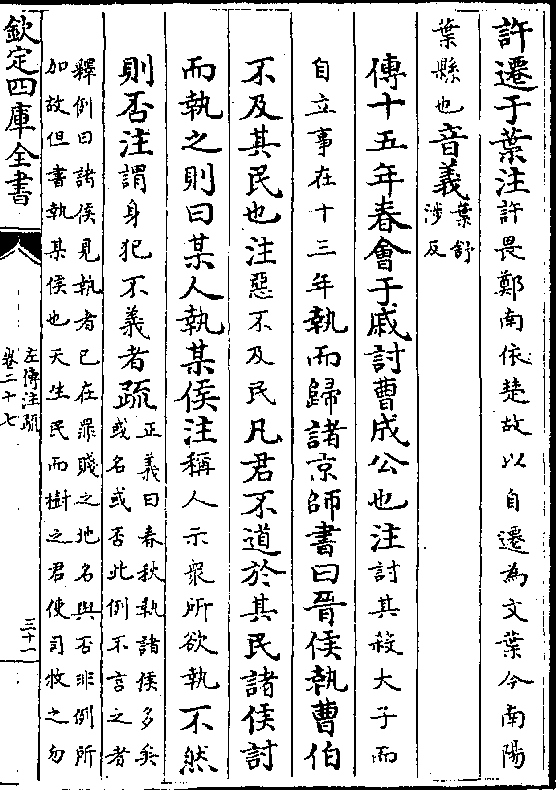 許遷于葉注許畏鄭南依楚故以自遷為文葉今南陽
葉縣也音義葉舒涉反
傳十五年春會于戚討曹成公也注討其殺大子而
自立事在十三年執而歸諸京師書曰晉侯執曹伯
不及其民也注惡不及民凡君不道於其民諸侯討
而執之則曰某人執某侯注稱人示衆所欲執不然
則否注謂身犯不義者疏正義曰春秋執諸侯多矣
或名或否此例不言之者
釋例曰諸侯見執者已在罪賤之地名與否非例所
加故但書執某侯也天生民而樹之君使司牧之勿
欽定四庫全書
左傳注疏
卷二十七
三十一